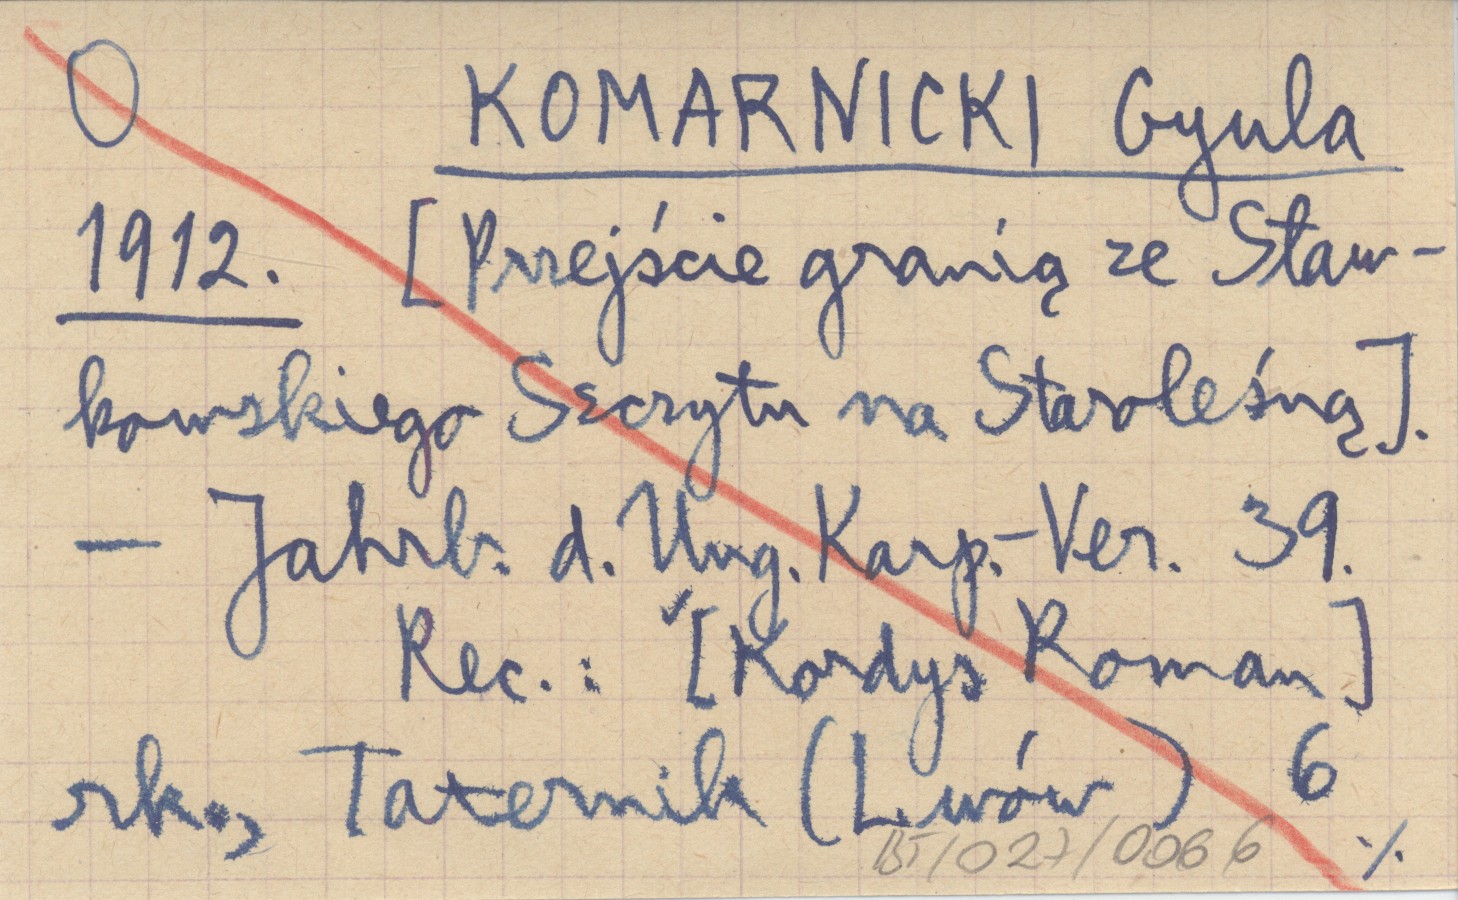 O KOMARNICKI Gyula
1912. [Przejście granią ze Staw-
kowskiego Szczytu na Staroleśną].
— Jahrb. d. Ung. Karp.-Ver. 39.
Rec.: [Kordys Roman]
rk., Taternik (Lwów) 6
BT/027/0066 ./.